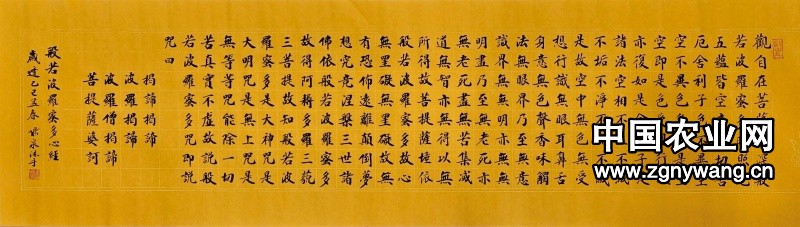 觀自在菩薩
若波羅蜜多
五蘊皆空
厄舍利子色
空不異色色
空即是色
亦復如是
諸法空相不
不垢不淨不
是故空中無色無受
想行識無眼耳鼻舌
身意無色聲香味觸
法無眼界乃至無意
識界無無明亦無無
明盡乃至無老死亦
無老死盡無苦集滅
道無智亦無得以無
所得故菩提薩埵依
般若波羅蜜多故心
無罣礙無罣礙故無
有恐怖遠離顛倒夢
想究竟涅槃三世諸
佛依般若波羅蜜多
故得阿耨多羅三藐
三菩提故知般若波
羅蜜多是大神咒是
大明咒是無上咒是
無等等咒能除一切
苦真實不虛故說般
若波羅蜜多咒即說
咒曰
揭諦揭諦
波羅揭諦
波羅僧揭諦
菩提薩婆訶
般若波羅蜜多心經
中国农业网
www.zgnywang.cn